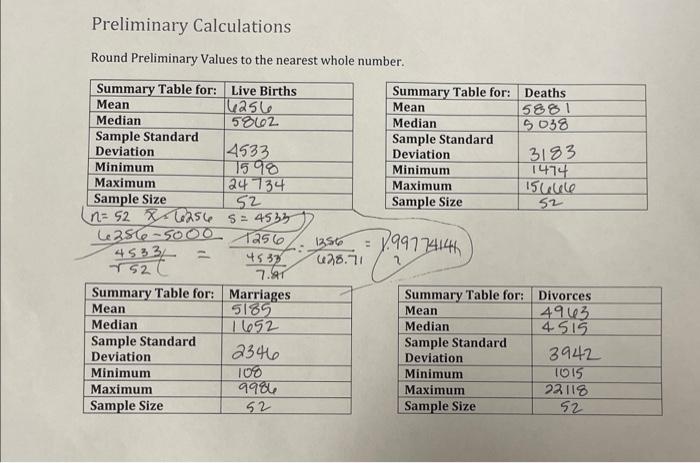 Preliminary Calculations
Round Preliminary Values to the nearest whole number.
Summary Table for: Live Births
Mean 6256
Median 5862
Sample Standard Deviation 4533
Minimum 1598
Maximum 24734
Sample Size 52
Summary Table for: Deaths
Mean 5881
Median 5038
Sample Standard Deviation 3183
Minimum 1474
Maximum 15666
Sample Size 52
n= 52 x̄=6256 s = 4533
6256-5000 / 4533/√52 = 1256 / 4533/7.21 = 1256 / 628.71 = 1.99774146
Summary Table for: Marriages
Mean 5185
Median 1652
Sample Standard Deviation 2346
Minimum 108
Maximum 9986
Sample Size 52
Summary Table for: Divorces
Mean 4963
Median 4515
Sample Standard Deviation 3942
Minimum 1015
Maximum 22118
Sample Size 52